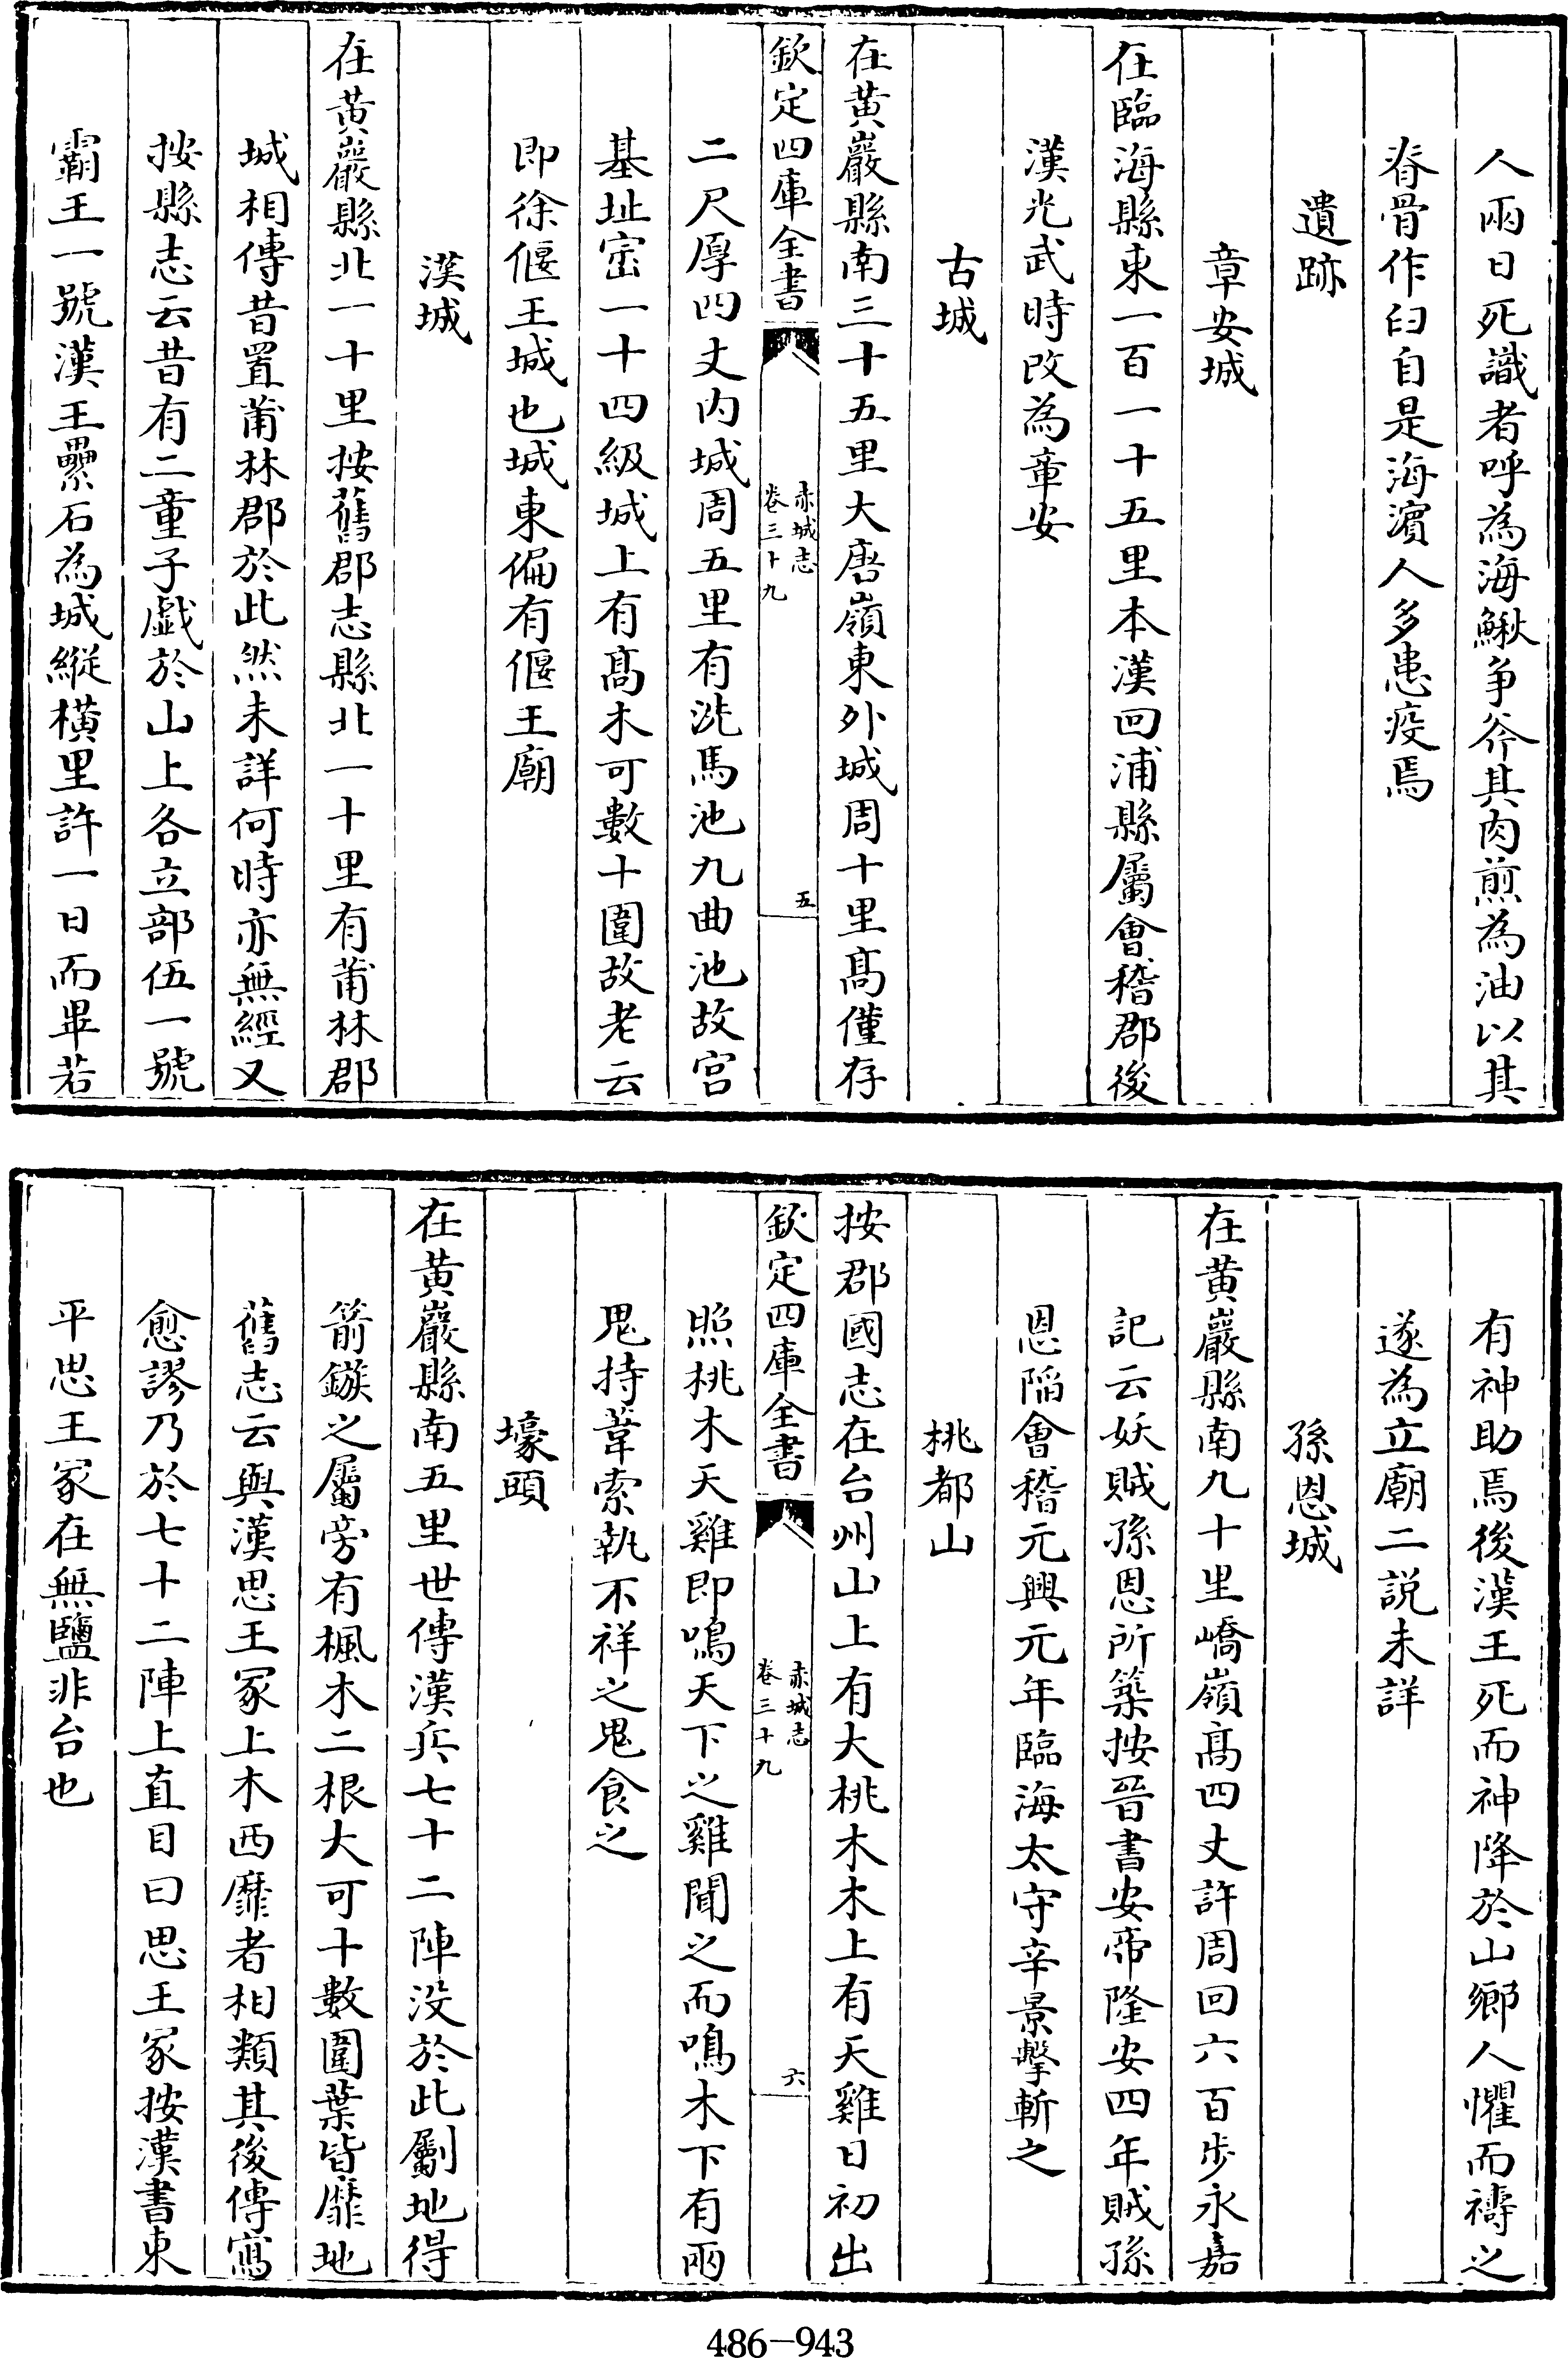 人兩日死識者呼為海鰍爭斧其肉煎為油以其
脊骨作臼自是海濱人多患疫焉
遺跡
章安城
在臨海縣東一百一十五里本漢回浦縣屬會稽郡後
漢光武時改為章安
古城
在黃巖縣南三十五里大唐嶺東外城周十里髙僅存
欽定四庫全書
赤城志
卷三十九
五
二尺厚四丈內城周五里有洗馬池九曲池故宮
基址崈一十四級城上有髙木可數十圍故老云
即徐偃王城也城東偏有偃王廟
漢城
在黃巖縣北一十里按舊郡志縣北一十里有莆林郡
城相傳昔置莆林郡於此然未詳何時亦無經又
按縣志云昔有二童子戲於山上各立部伍一號
霸王一號漢王纍石為城縱橫里許一日而畢若
有神助焉後漢王死而神降於山鄉人懼而禱之
遂為立廟二説未詳
孫恩城
在黃巖縣南九十里嶠嶺髙四丈許周回六百步永嘉
記云妖賊孫恩所築按晉書安帝隆安四年賊孫
恩陷會稽元興元年臨海太守辛景擊斬之
桃都山
按郡國志在台州山上有大桃木木上有天雞日初出
欽定四庫全書
赤城志
卷三十九
六
照桃木天雞即鳴天下之雞聞之而鳴木下有兩
鬼持葦索執不祥之鬼食之
壕頭
在黃巖縣南五里世傳漢兵七十二陣沒於此劚地得
箭鏃之屬旁有楓木二根大可十數圍葉皆靡地
舊志云與漢思王冢上木西靡者相類其後傳寫
愈謬乃於七十二陣上直目曰思王冢按漢書東
平思王冢在無鹽非台也
486-943